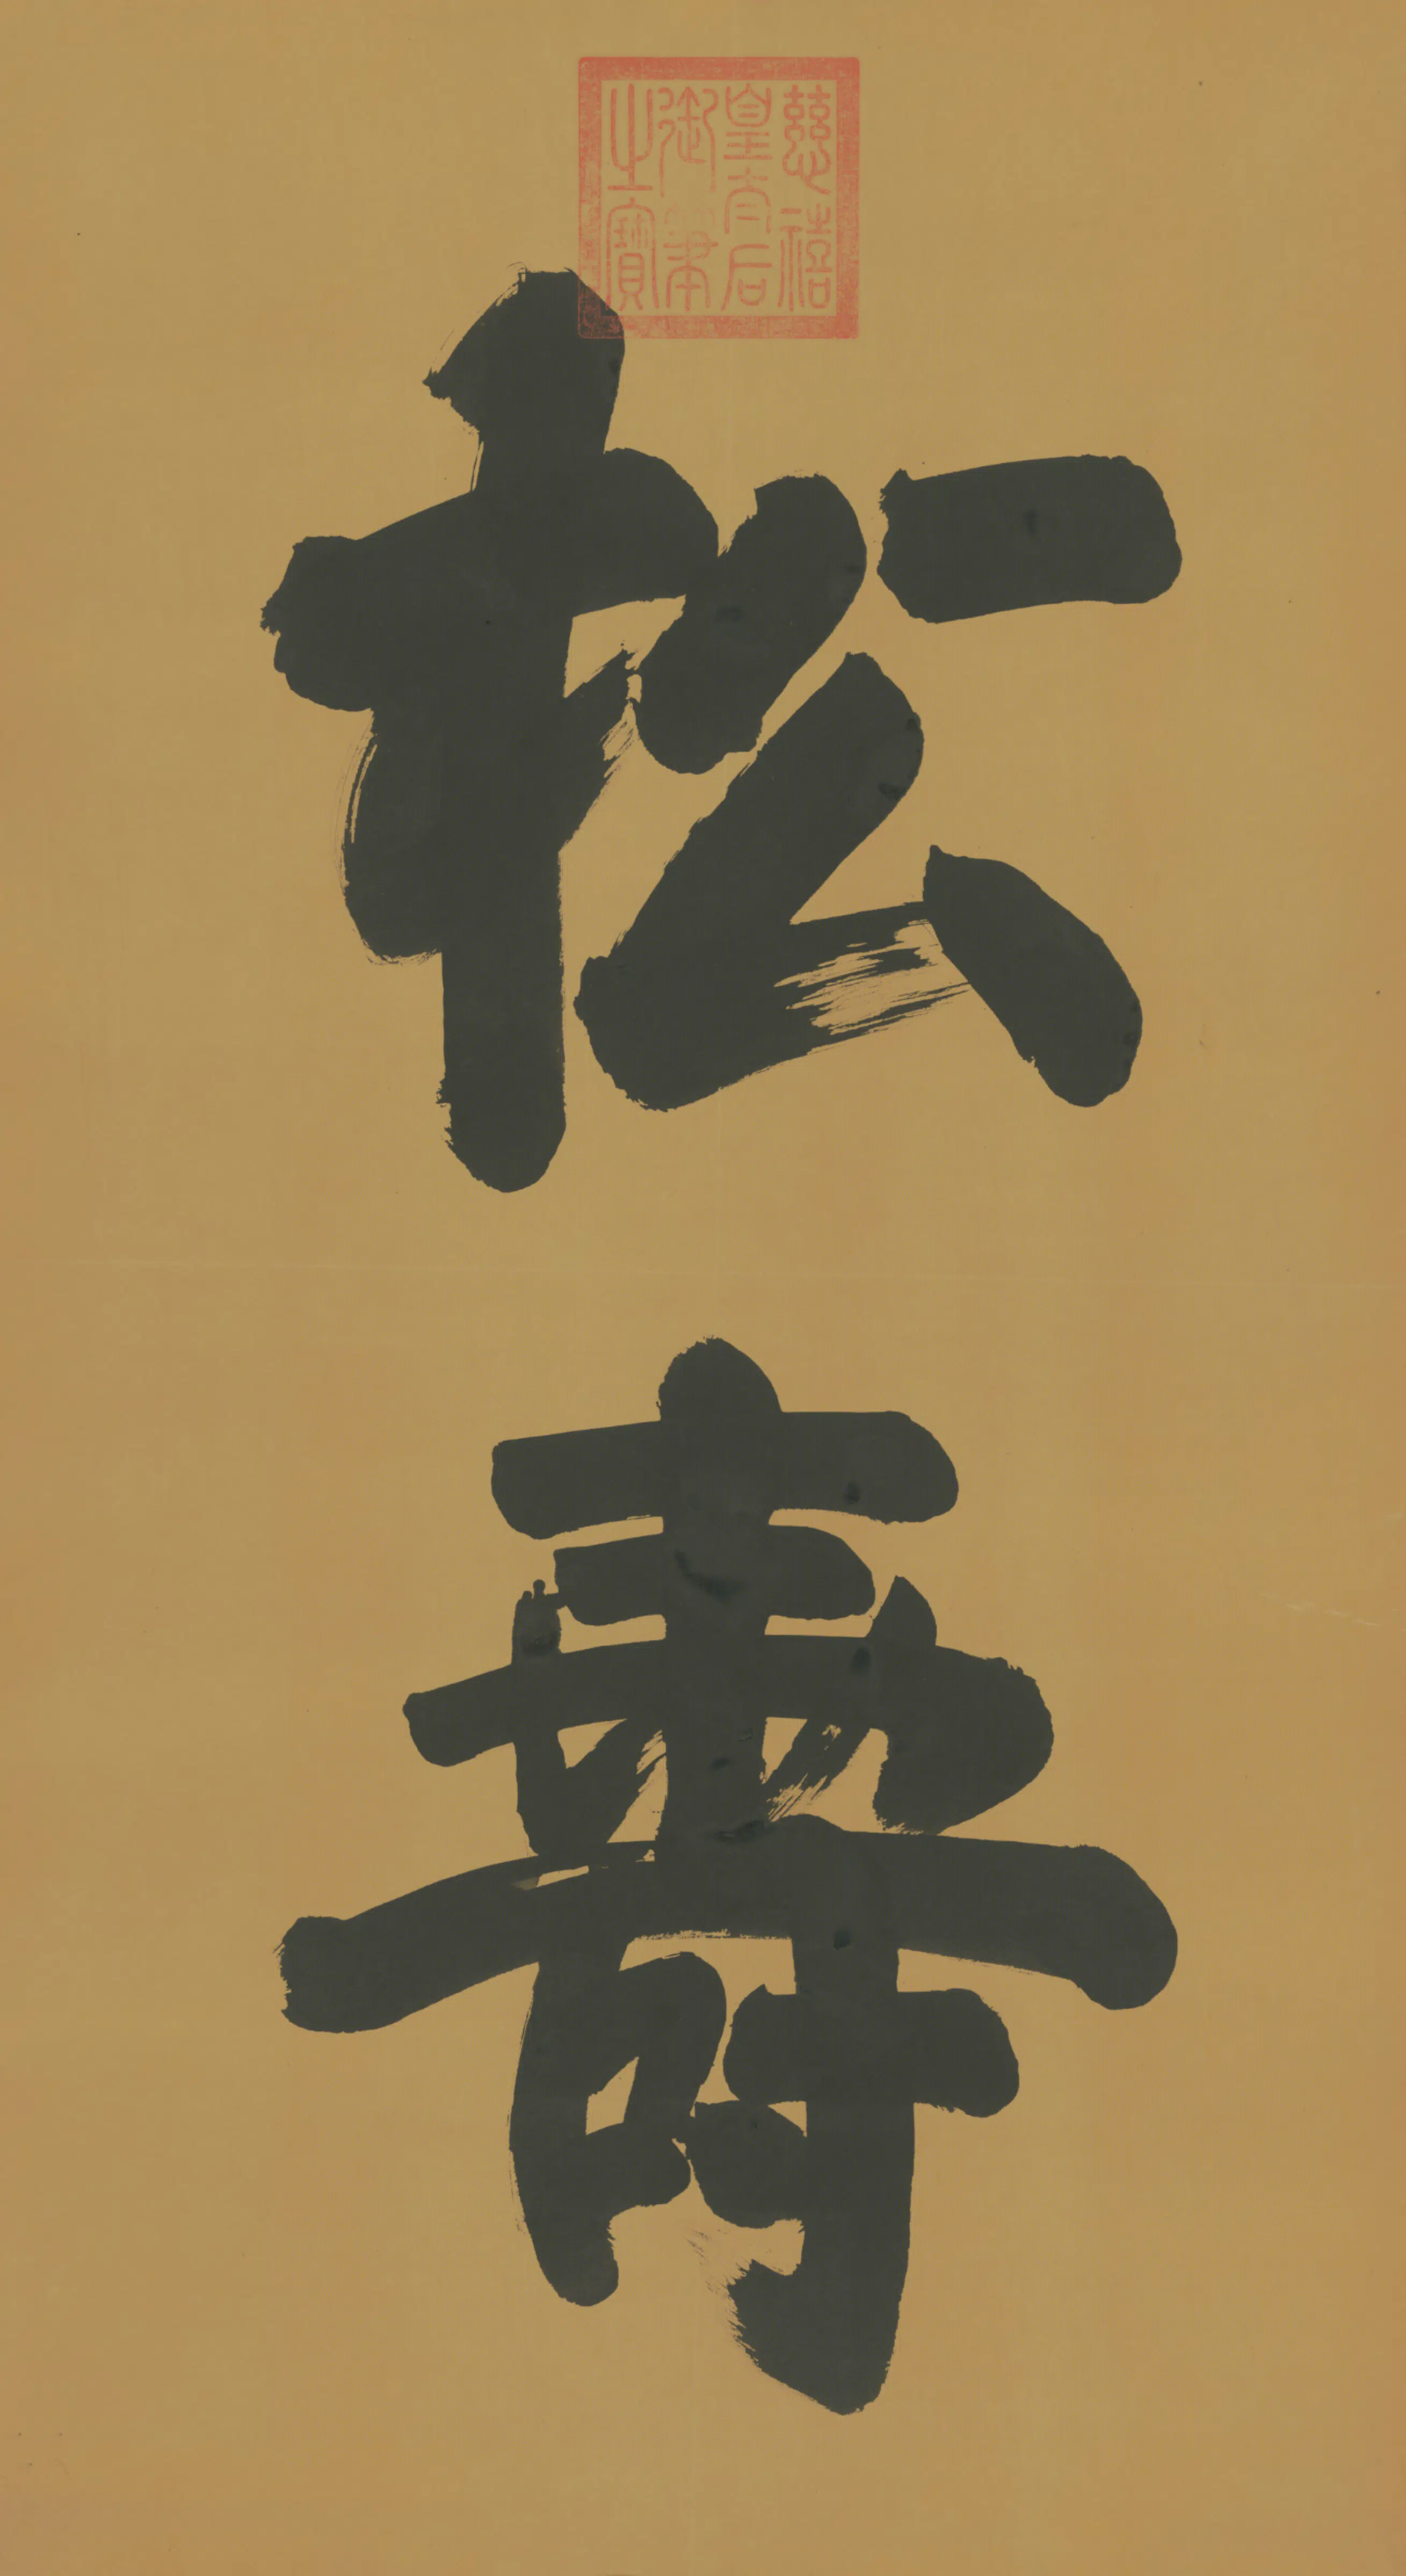 慈禧
皇太后
御筆
之寶
松
壽